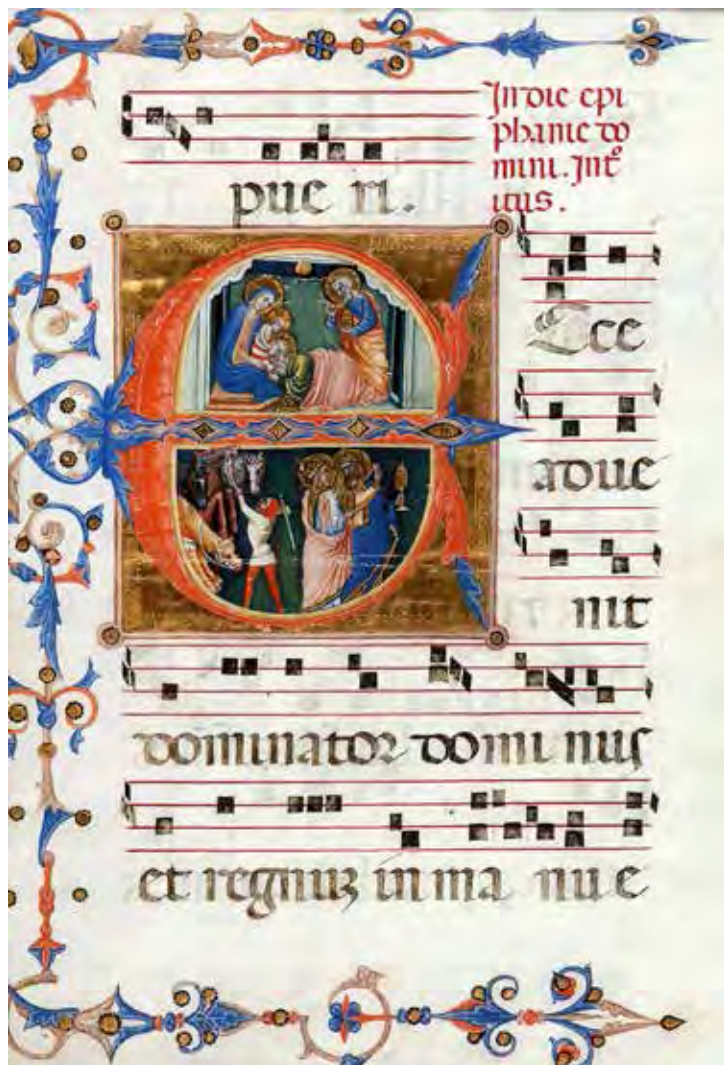 pue ri.
In die epi
phanie do
mini. Int̊
itus.
Ecce
adue
nit
dominator dominus
et regnuꝫ in ma nu e